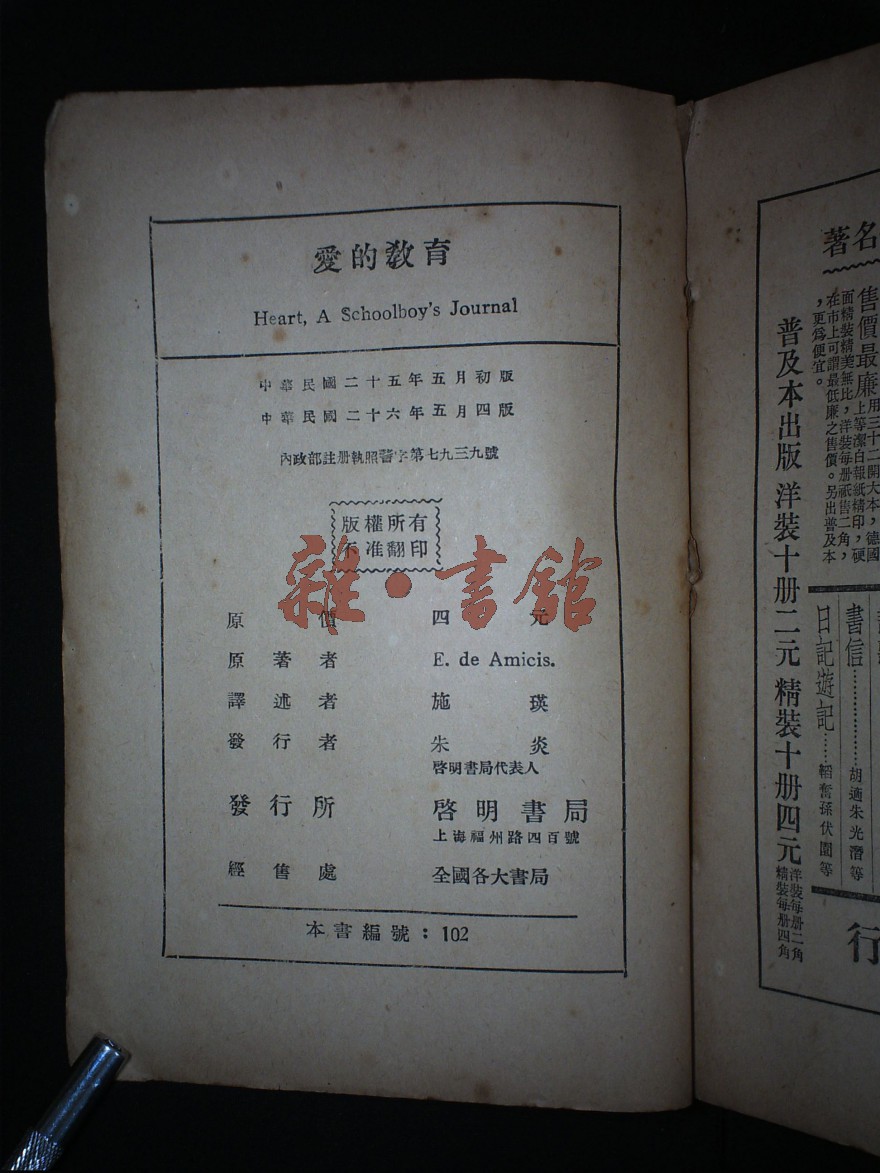 愛的敎育
Heart, A Schoolboy's Journal
中華民國二十五年五月初版
中華民國二十六年五月四版
內政部註册執照警字第七九三九號
版權所有
不准翻印
雜·書館
原價 四元
原著者 E. de Amicis.
譯述者 施瑛
發行者 朱炎
啓明書局代表人
發行所 啓明書局
上海福州路四百號
經售處 全國各大書局
本書編號：102
名
著
售價最廉
用三十二開大本，德國
上等潔白報紙精印，硬
面精裝精美無比，洋裝每册祇售二角，
在市上可謂最低廉之售價。另出普及本
，更爲便宜。
普及本出版 洋裝十册二元 精裝十册四元
洋裝每册二角
精裝每册四角
書信……胡適朱光潛等
日記遊記……韜奮孫伏園等
行